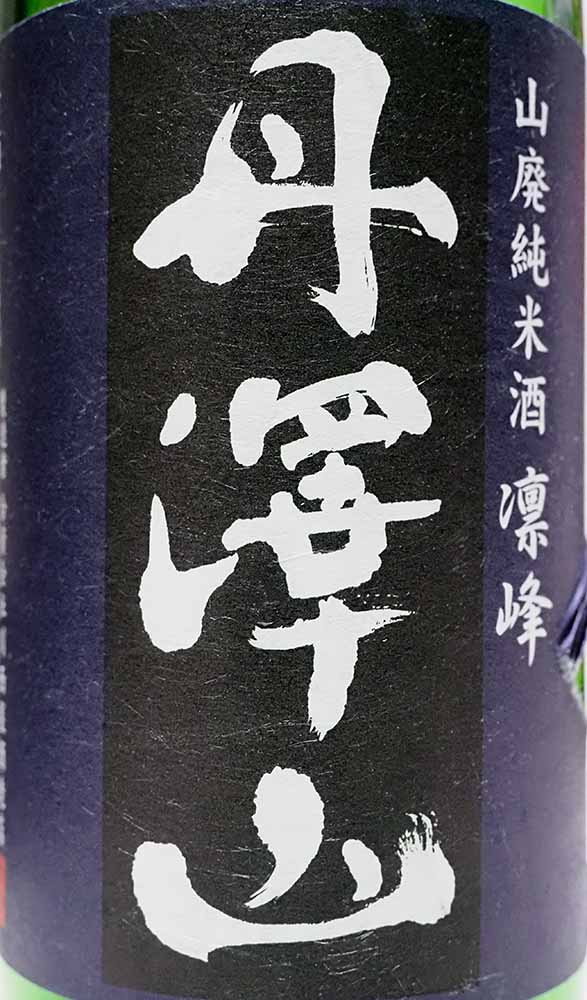 山廃純米酒 凛峰
丹澤山